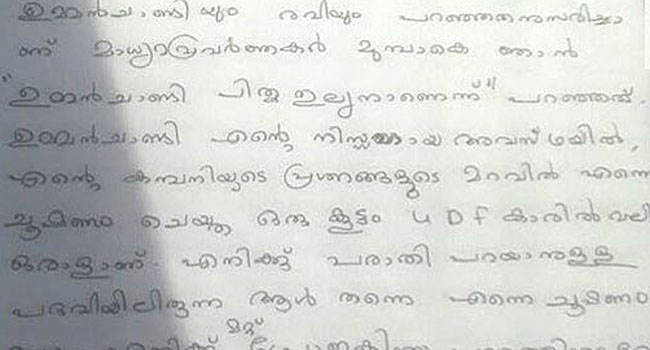 ഉമ്മൻചാണ്ടിയും രവിയും പറഞ്ഞതനുസരിച്ചാ
ണ് മാധ്യമപ്രവർത്തകർ മുമ്പാകെ ഞാൻ
"ഉമ്മൻചാണ്ടി പിതൃതുല്യനാണെന്ന്" പറഞ്ഞത്.
ഉമ്മൻചാണ്ടി എന്റെ നിസ്സഹായ അവസ്ഥയിൽ,
എന്റെ കമ്പനിയുടെ പ്രശ്നങ്ങളുടെ മറവിൽ എന്നെ
ചൂഷണം ചെയ്ത ഒരു കൂട്ടം UDF കാരിൽ
ഒരാളാണ്. എനിക്ക് പരാതി പറയാനുള്ള
പദവിയിലിരുന്ന ആൾ തന്നെ എന്നെ ചൂഷണം
മറ്റ്